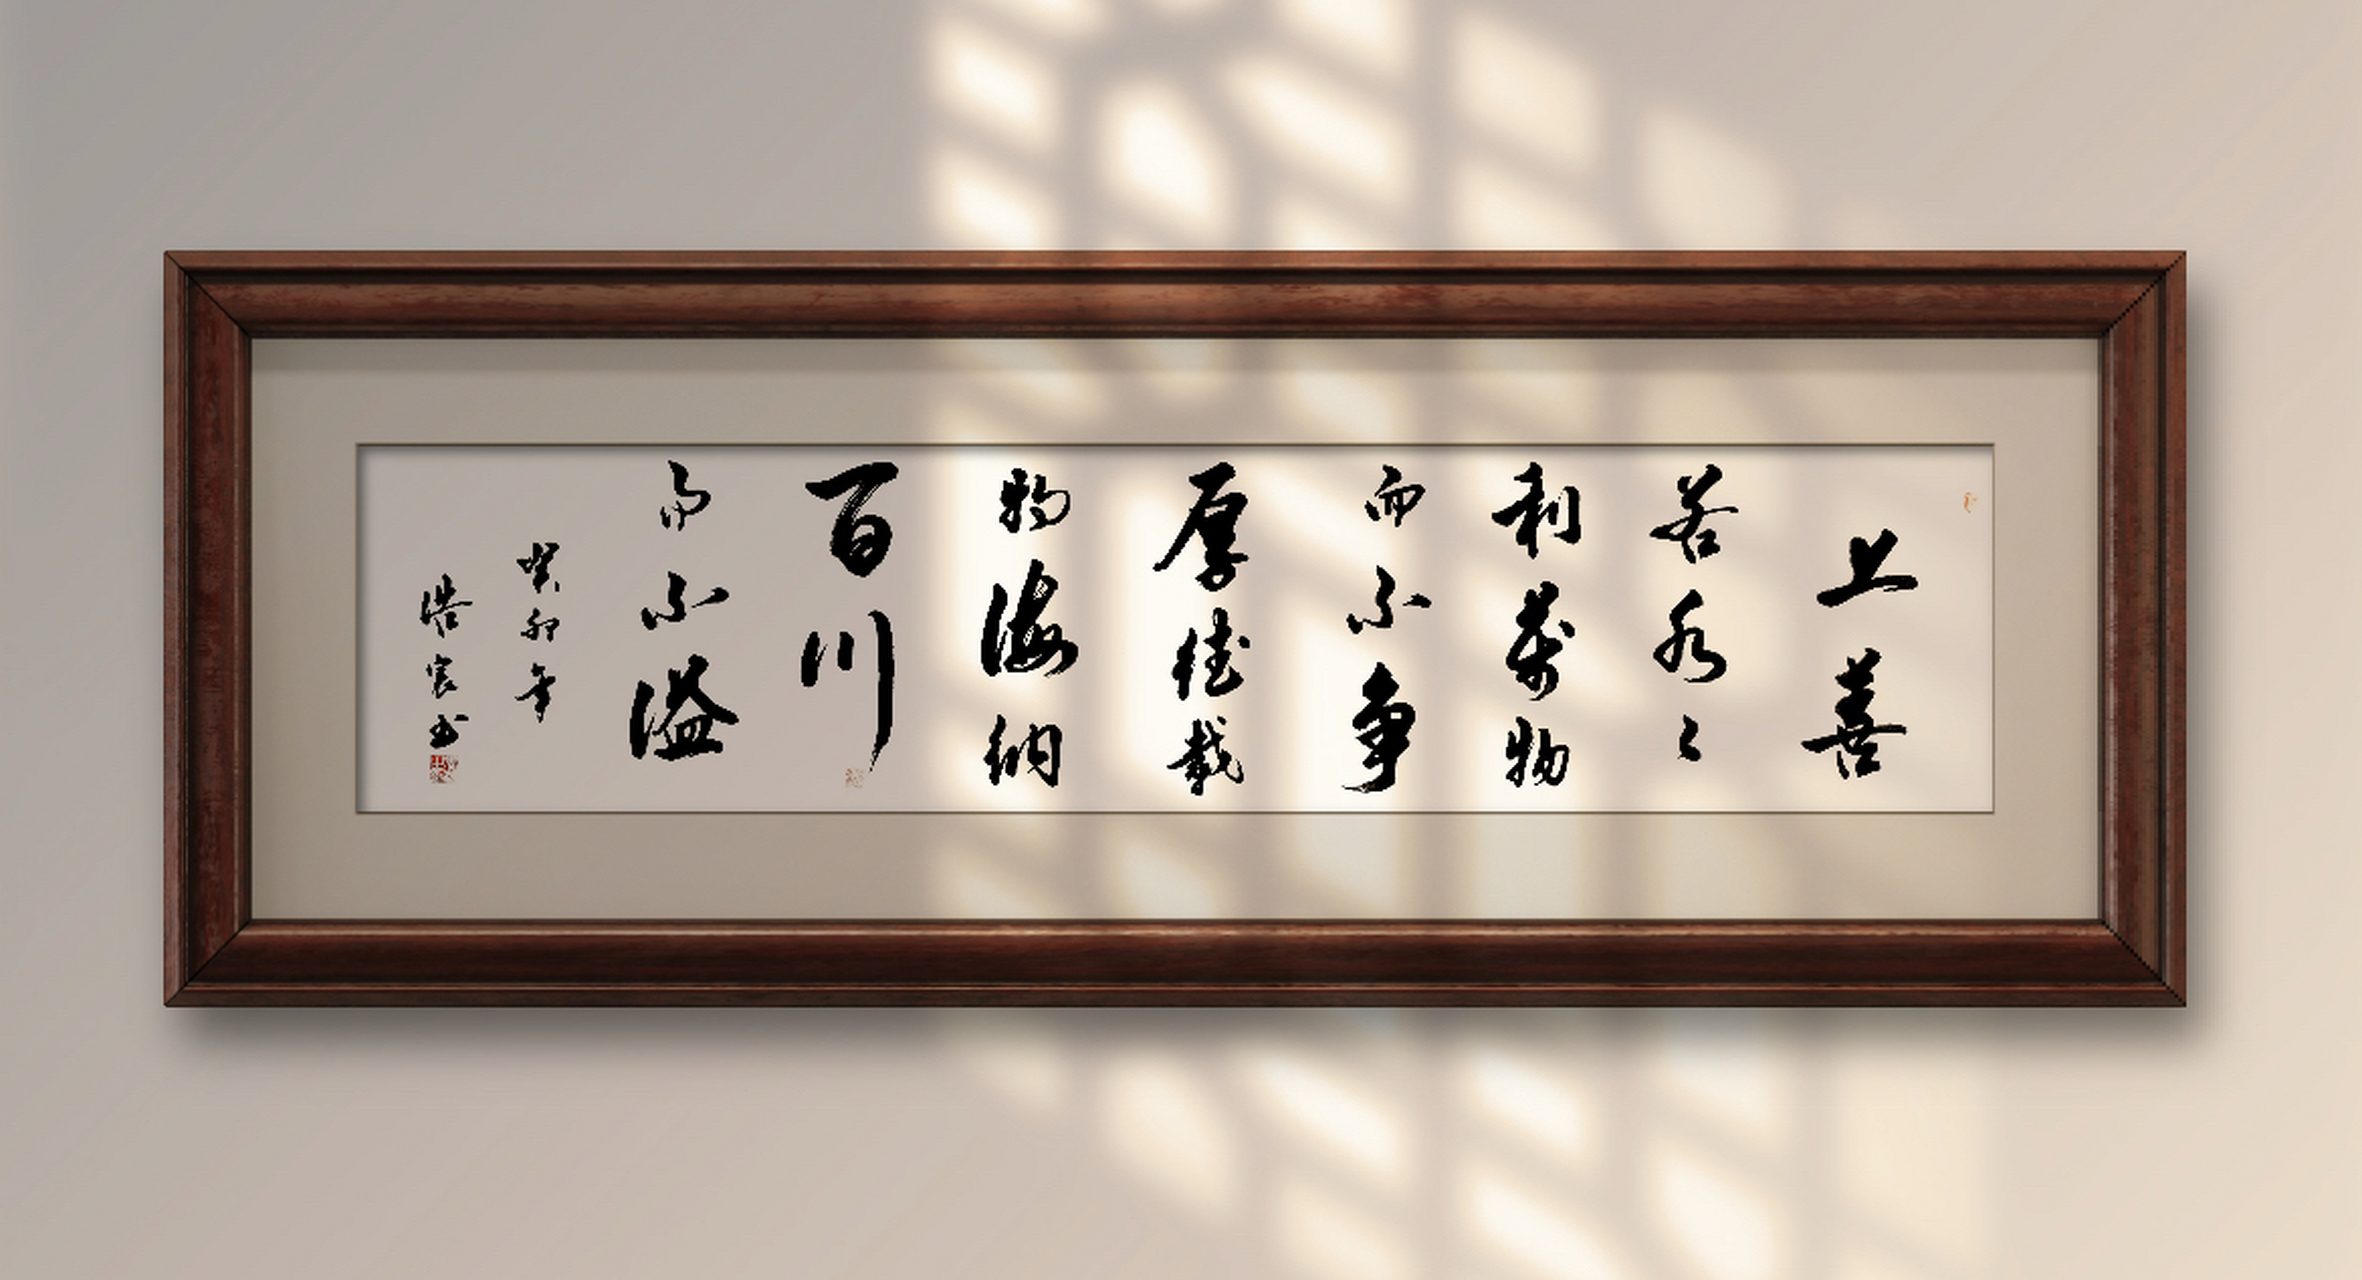 上善
若水〻
利萬物
而不争
厚德載
物海納
百川
而不溢
癸卯年
浩宸书